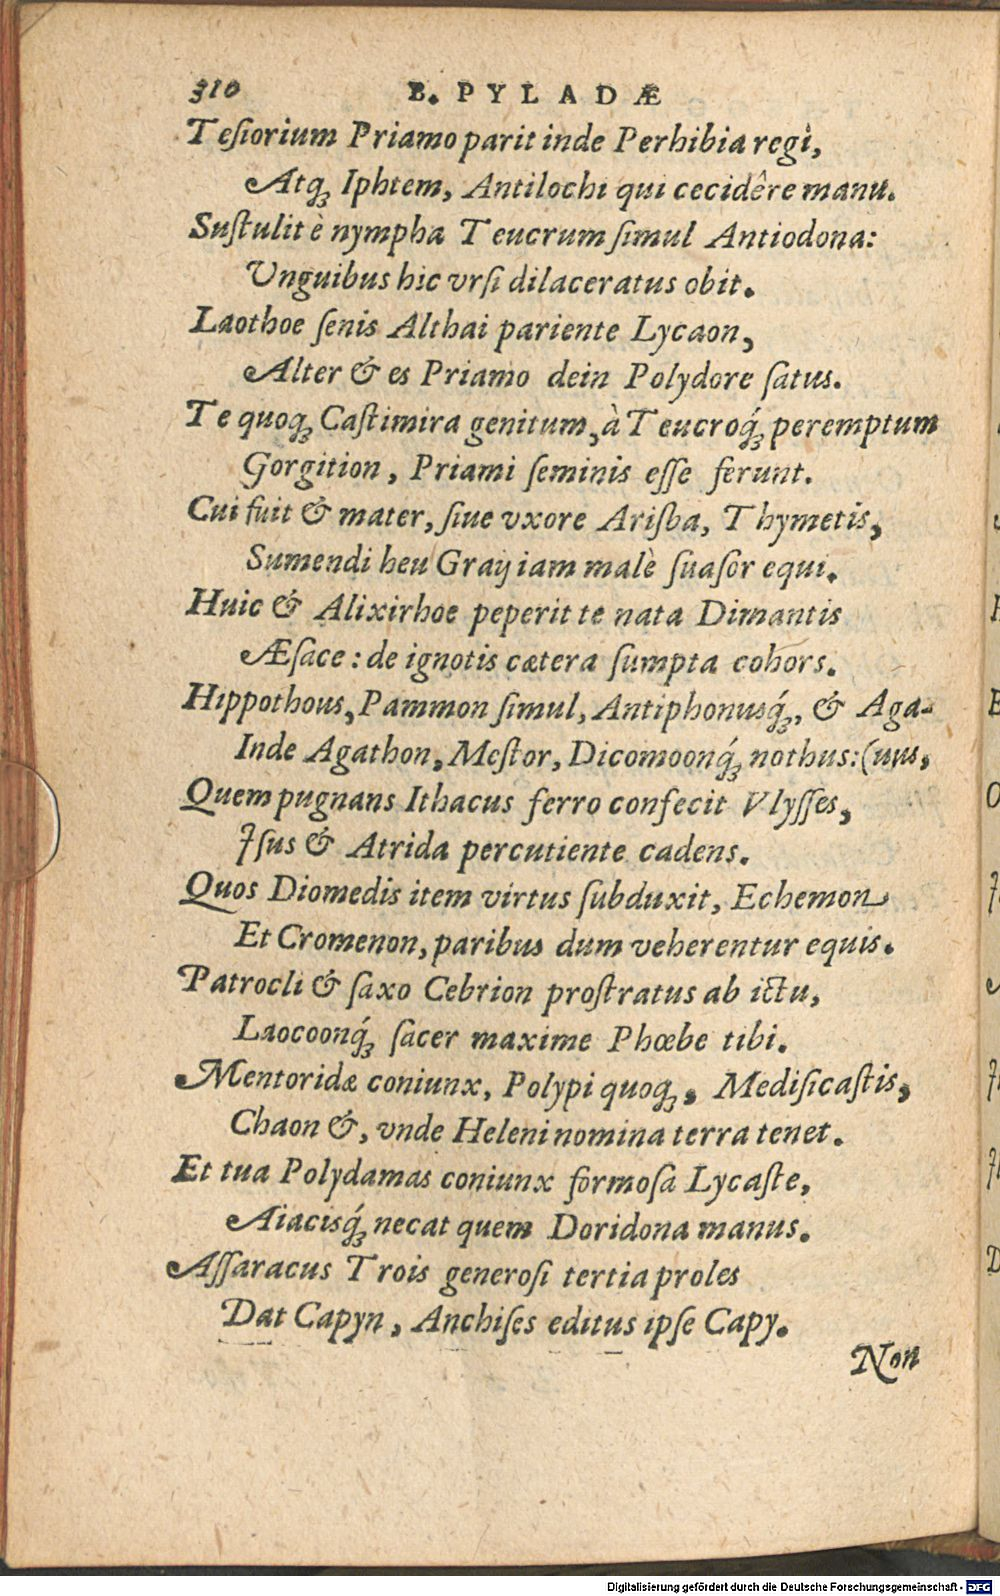 310 B. PYLADÆ
Tesiorium Priamo parit inde Perhibia regi,
Atqꝫ Iphtem, Antilochi qui cecidêre manu.
Suſtulit è nympha Teucrum ſimul Antiodona:
Vnguibus hic vrſi dilaceratus obit.
Laothoe ſenis Althai pariente Lycaon,
Alter & es Priamo dein Polydore ſatus.
Te quoqꝫ Caſtimira genitum, à Teucroq́ꝫ peremptum
Gorgition, Priami ſeminis eſſe ferunt.
Cui fuit & mater, ſiue vxore Arisba, Thymetis,
Sumendi heu Graij iam malè ſuaſor equi.
Huic & Alixirhoe peperit te nata Dimantis
Æſace: de ignotis cætera ſumpta cohors.
Hippothous, Pammon ſimul, Antiphonusq́ꝫ, & Aga-
Inde Agathon, Meſtor, Dicomoonq́ꝫ nothus: (uus,
Quem pugnans Ithacus ferro confecit Vlyſſes,
Iſus & Atrida percutiente cadens.
Quos Diomedis item virtus ſubduxit, Echemon
Et Cromenon, paribus dum veherentur equis.
Patrocli & ſaxo Cebrion proſtratus ab ictu,
Laocoonq́ꝫ ſacer maxime Phœbe tibi.
Mentoridæ coniunx, Polypi quoqꝫ, Medisicaſtis,
Chaon &, vnde Heleni nomina terra tenet.
Et tua Polydamas coniunx formoſa Lycaſte,
Aiacisq́ꝫ necat quem Doridona manus.
Aſſaracus Trois generoſi tertia proles
Dat Capyn, Anchiſes editus ipſe Capy.
Non
Digitalisierung gefördert durch die Deutsche Forschungsgemeinschaft - DFG